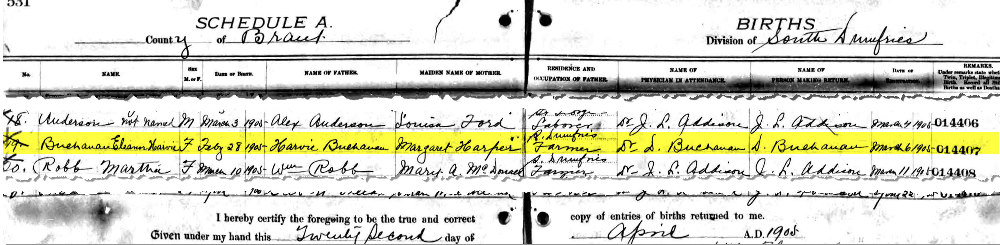 531
SCHEDULE A. BIRTHS
County of Brant Division of South Dumfries
No. NAME. SEX M. or F. DATE OF BIRTH. NAME OF FATHER. MAIDEN NAME OF MOTHER. RESIDENCE AND OCCUPATION OF FATHER. NAME OF PHYSICIAN IN ATTENDANCE. NAME OF PERSON MAKING RETURN. DATE OF REMARKS. Under remarks state Twin, Triplet,
Anderson not named M March 3 1905 Alex Anderson Louisa Ford Laborer Dr J. L. Addison J. L. Addison March 4 1905 014406
Buchanan Eleanor Harvie F Feby 28 1905 Harvie Buchanan Margaret Harper S. Dumfries Farmer Dr. D. Buchanan D. Buchanan March 6 1905 014407
Robb Martha F March 10 1905 Wm Robb Mary A. S. Dumfries Farmer Dr J. L. Addison J. L. Addison March 11 1905 014408
I hereby certify the foregoing to be the true and correct copy of entries of births returned to me.
Given under my hand this Twenty Second day of April A.D. 1905